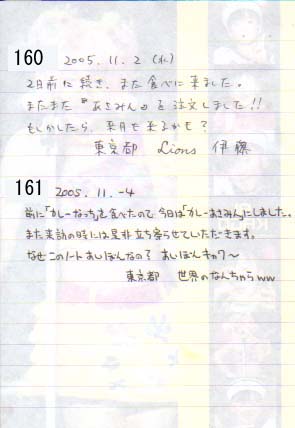 160 2005.11.2 (水)
2日前に続き、また食べに来ました。
またまた『あさみん』を注文しました!!
もしかしたら、来月も来るかも?
東京都 Lions 伊藤
161 2005.11.-4
前に「カレーなっち」を食べたので今日は「カレーあさみん」にしました。
また来訪の時には是非立ち寄らせていただきます。
なぜこのノートあいぼんなの? あいぼんキャワ〜
東京都 世界のなんちゃらww